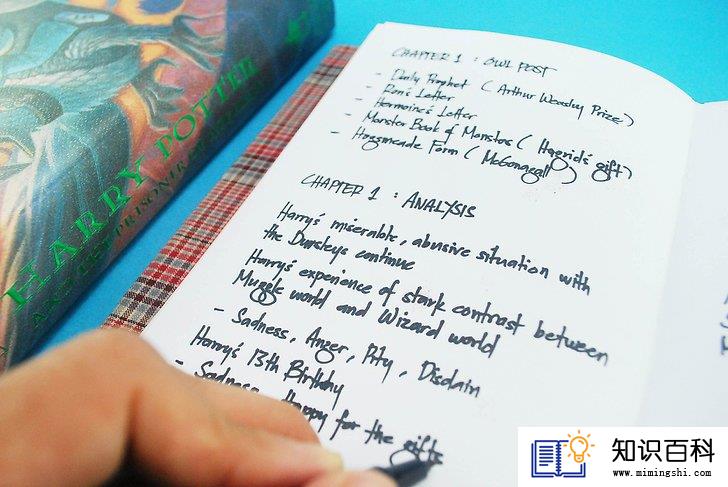 HARRY POTTER
AND THE PRISONER
CHAPTER 1 : OWL POST
- Daily Prophet ( Arthur Weasley Prize)
- Ron's Letter
- Hermoine's Letter
- Monster Book of Monstos ( Hagrid's gift)
- Hogsmeade Form ( McGonagall )
CHAPTER 1 : ANALYSIS
Harry's miserable, abusive situation with
the Dursleys continue
Harry's experience of stark contrast between
Muggle world and Wizard world
- Sadness, Anger, Pity, Disdain
Harry's 13th Birthday
- Sadness, Happy for the gifts
知识百科
www.mimingshi.com